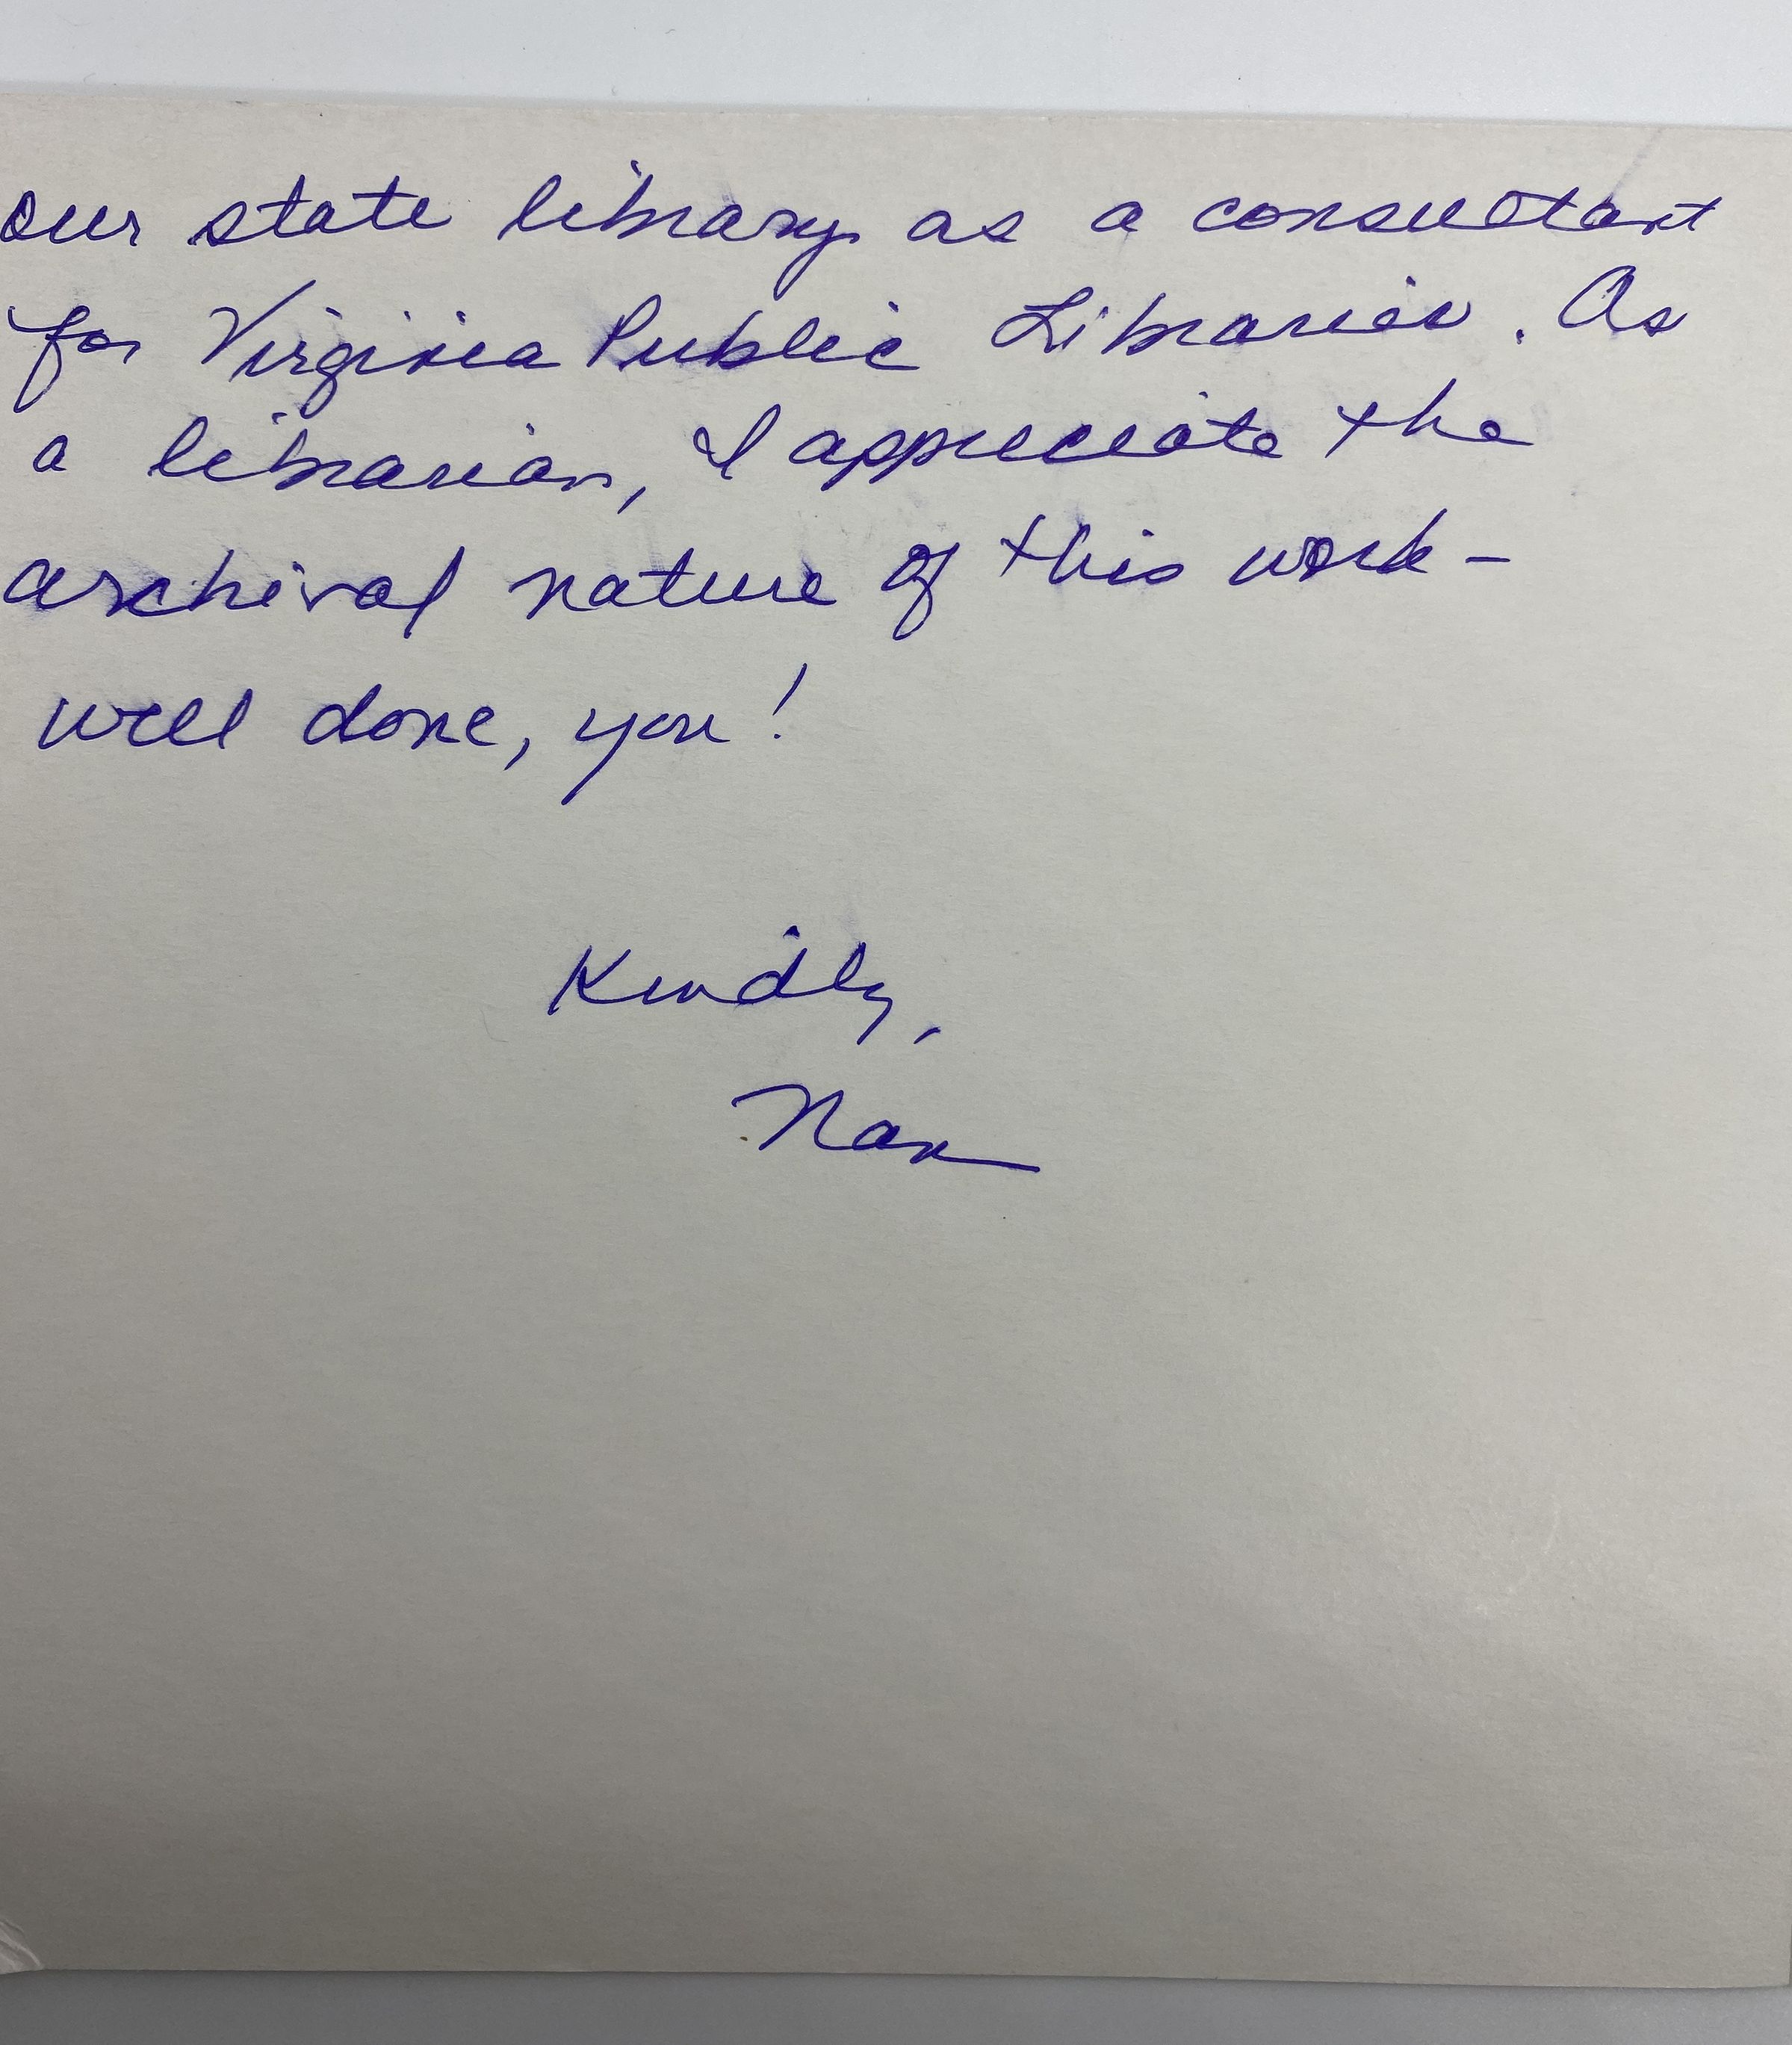 our state library as a consultant
for Virginia Public Libraries. As
a librarian, I appreciate the
archival nature of this work -
well done, you!
Kindly,
Nan